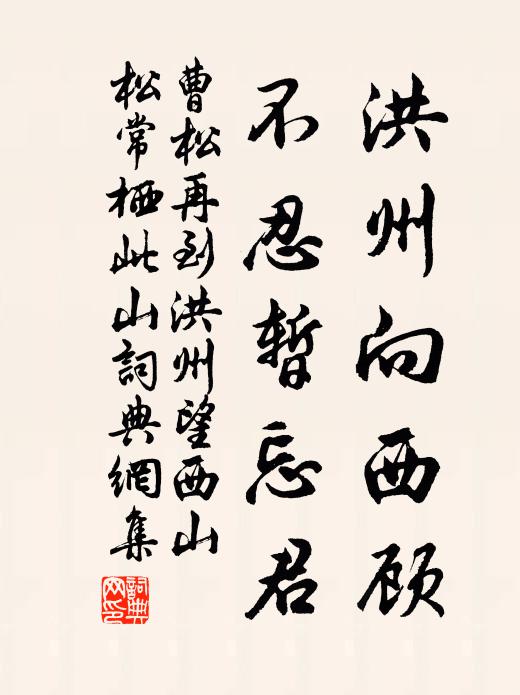 洪州向西顾
不忍暂忘君
曹松再到洪州望西山
松常栖此山詞典網集
詞典网印